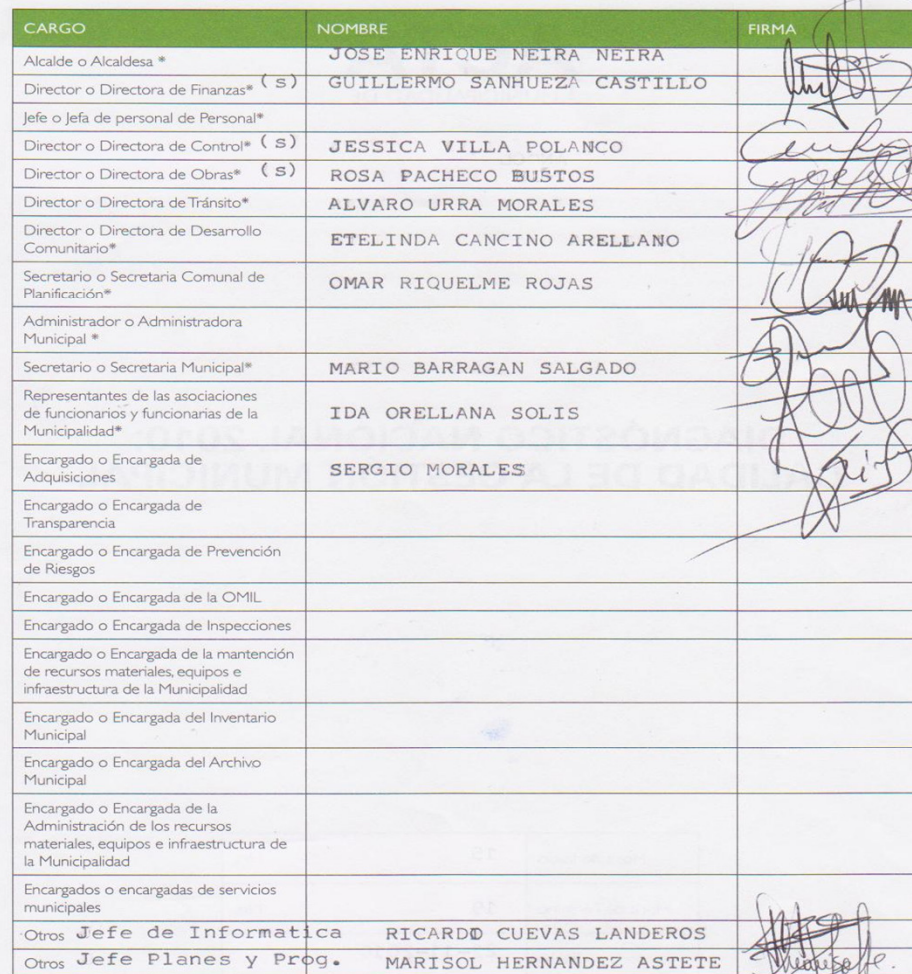 CARGO NOMBRE FIRMA
Alcalde o Alcaldesa * JOSE ENRIQUE NEIRA NEIRA
Director o Directora de Finanzas* (s) GUILLERMO SANHUEZA CASTILLO
Jefe o Jefa de personal de Personal*
Director o Directora de Control* (s) JESSICA VILLA POLANCO
Director o Directora de Obras* (s) ROSA PACHECO BUSTOS
Director o Directora de Tránsito* ALVARO URRA MORALES
Director o Directora de Desarrollo
Comunitario* ETELINDA CANCINO ARELLANO
Secretario o Secretaria Comunal de
Planificación* OMAR RIQUELME ROJAS
Administrador o Administradora
Municipal *
Secretario o Secretaria Municipal* MARIO BARRAGAN SALGADO
Representantes de las asociaciones
de funcionarios y funcionarias de la
Municipalidad* IDA ORELLANA SOLIS
Encargado o Encargada de
Adquisiciones SERGIO MORALES
Encargado o Encargada de
Transparencia
Encargado o Encargada de Prevención
de Riesgos
Encargado o Encargada de la OMIL
Encargado o Encargada de Inspecciones
Encargado o Encargada de la mantención
de recursos materiales, equipos e
infraestructura de la Municipalidad
Encargado o Encargada del Inventario
Municipal
Encargado o Encargada del Archivo
Municipal
Encargado o Encargada de la
Administración de los recursos
materiales, equipos e infraestructura de
la Municipalidad
Encargados o encargadas de servicios
municipales
Otros Jefe de Informatica RICARDO CUEVAS LANDEROS
Otros Jefe Planes y Prog. MARISOL HERNANDEZ ASTETE